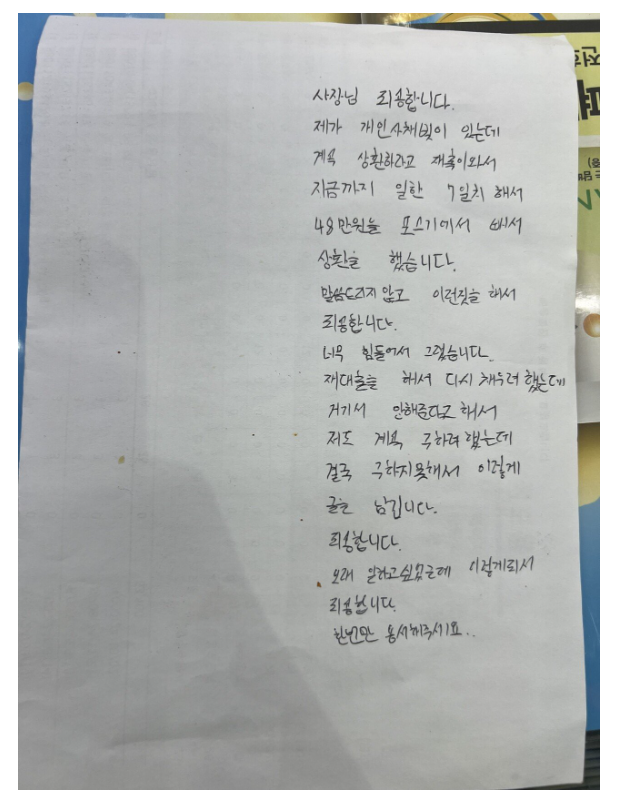 사장님 죄송합니다.
제가 개인사채빚이 있는데
계속 상환하라고 재촉이와서
지금까지 일한 7일치 해서
48만원을 포스기에서 빼서
상환을 했습니다.
말씀드리지 않고 이런짓을 해서
죄송합니다.
너무 힘들어서 그랬습니다.
재대출을 해서 다시 채우려 했는데
거기서 안해준다고 해서
저도 계속 구하려 했는데
결국 구하지못해서 이렇게
글을 남깁니다.
죄송합니다.
오래 일하고싶었는데 이렇게되서
죄송합니다.
한번만 용서해주세요..